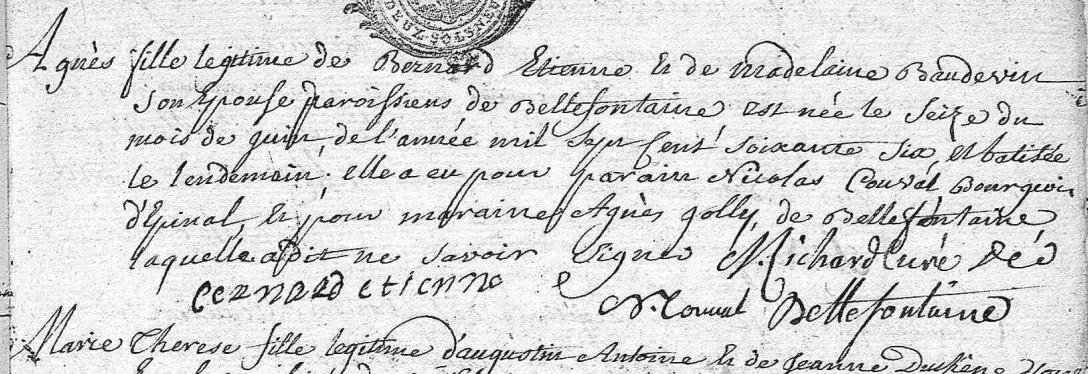 DEUX SOLS NEUF
Agnès fille legitime de Bernard Etienne et de madelaine Baudevin
son Epouse paroissiens de Bellefontaine est née le seize du
mois de juin, de l'année mil sept cent soixante six, et batisée
le lendemain. elle a eu pour parain Nicolas Couval Bourgeois
d'Epinal, et pour maraine Agnès golly, de Bellefontaine,
laquelle a dit ne savoir signer N. Michard Curé de
Bernard etienne N. Couval Bellefontaine
Marie Therese fille legitime d'augustin Antoine et de Jeanne